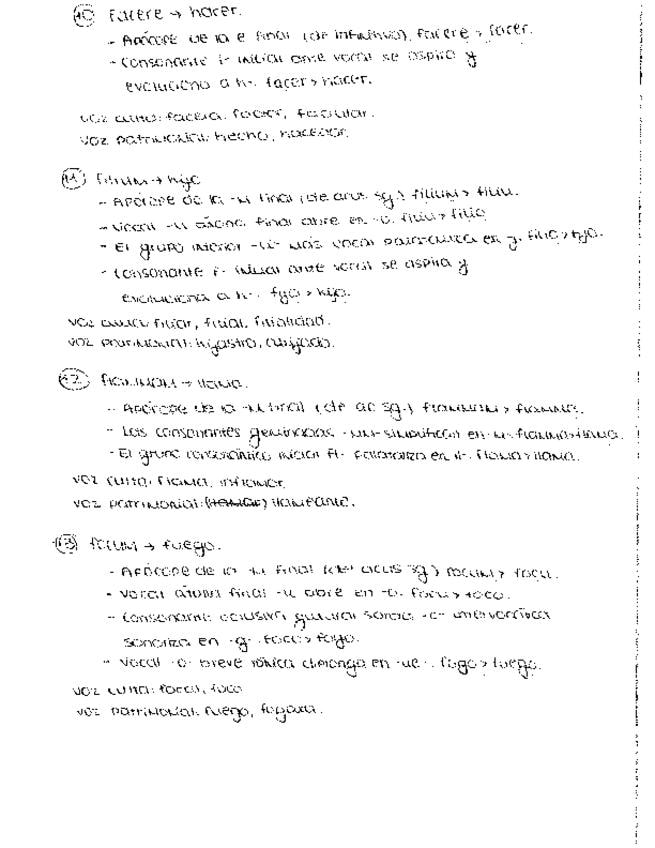 10 facere → hacer.
- Apócope de la e final (de infinitivo). facere > facer.
- Consonante f- inicial ante vocal se aspira y
evoluciona a h-. facer > hacer.
voz culta: faceta. facular.
voz patrimonial: hecho, hacedor.
11 filium → hijo
- Apócope de la -m final (de acus sg.) filium > filiu.
- Vocal -u átona final abre en -o. filiu > filio
- El grupo interior -li- más vocal palataliza en j. filio > fijo.
- Consonante f- inicial ante vocal se aspira y
evoluciona a h-. fijo > hijo.
voz culta: filiar, filial, filialidad.
voz patrimonial: hijastro, ahijado.
12 flammam → llama.
- Apócope de la -m final (de ac sg.) flammam > flamma.
- Las consonantes geminadas -mm- simplifican en -m-. flamma > flama.
- El grupo consonántico inicial fl- palataliza en ll-. flama > llama.
voz culta: flama, inflamar
voz patrimonial: (llamar) llameante.
13 focum → fuego.
- Apócope de la -m final (de acus sg.) focum > focu.
- Vocal átona final -u abre en -o. focu > foco.
- Consonante oclusiva gutural sorda -c- intervocálica
sonoriza en -g-. foco > fogo.
- Vocal -o- breve tónica diptonga en -ue-. fogo > fuego.
voz culta: focal, foco
voz patrimonial: fuego, fogata.